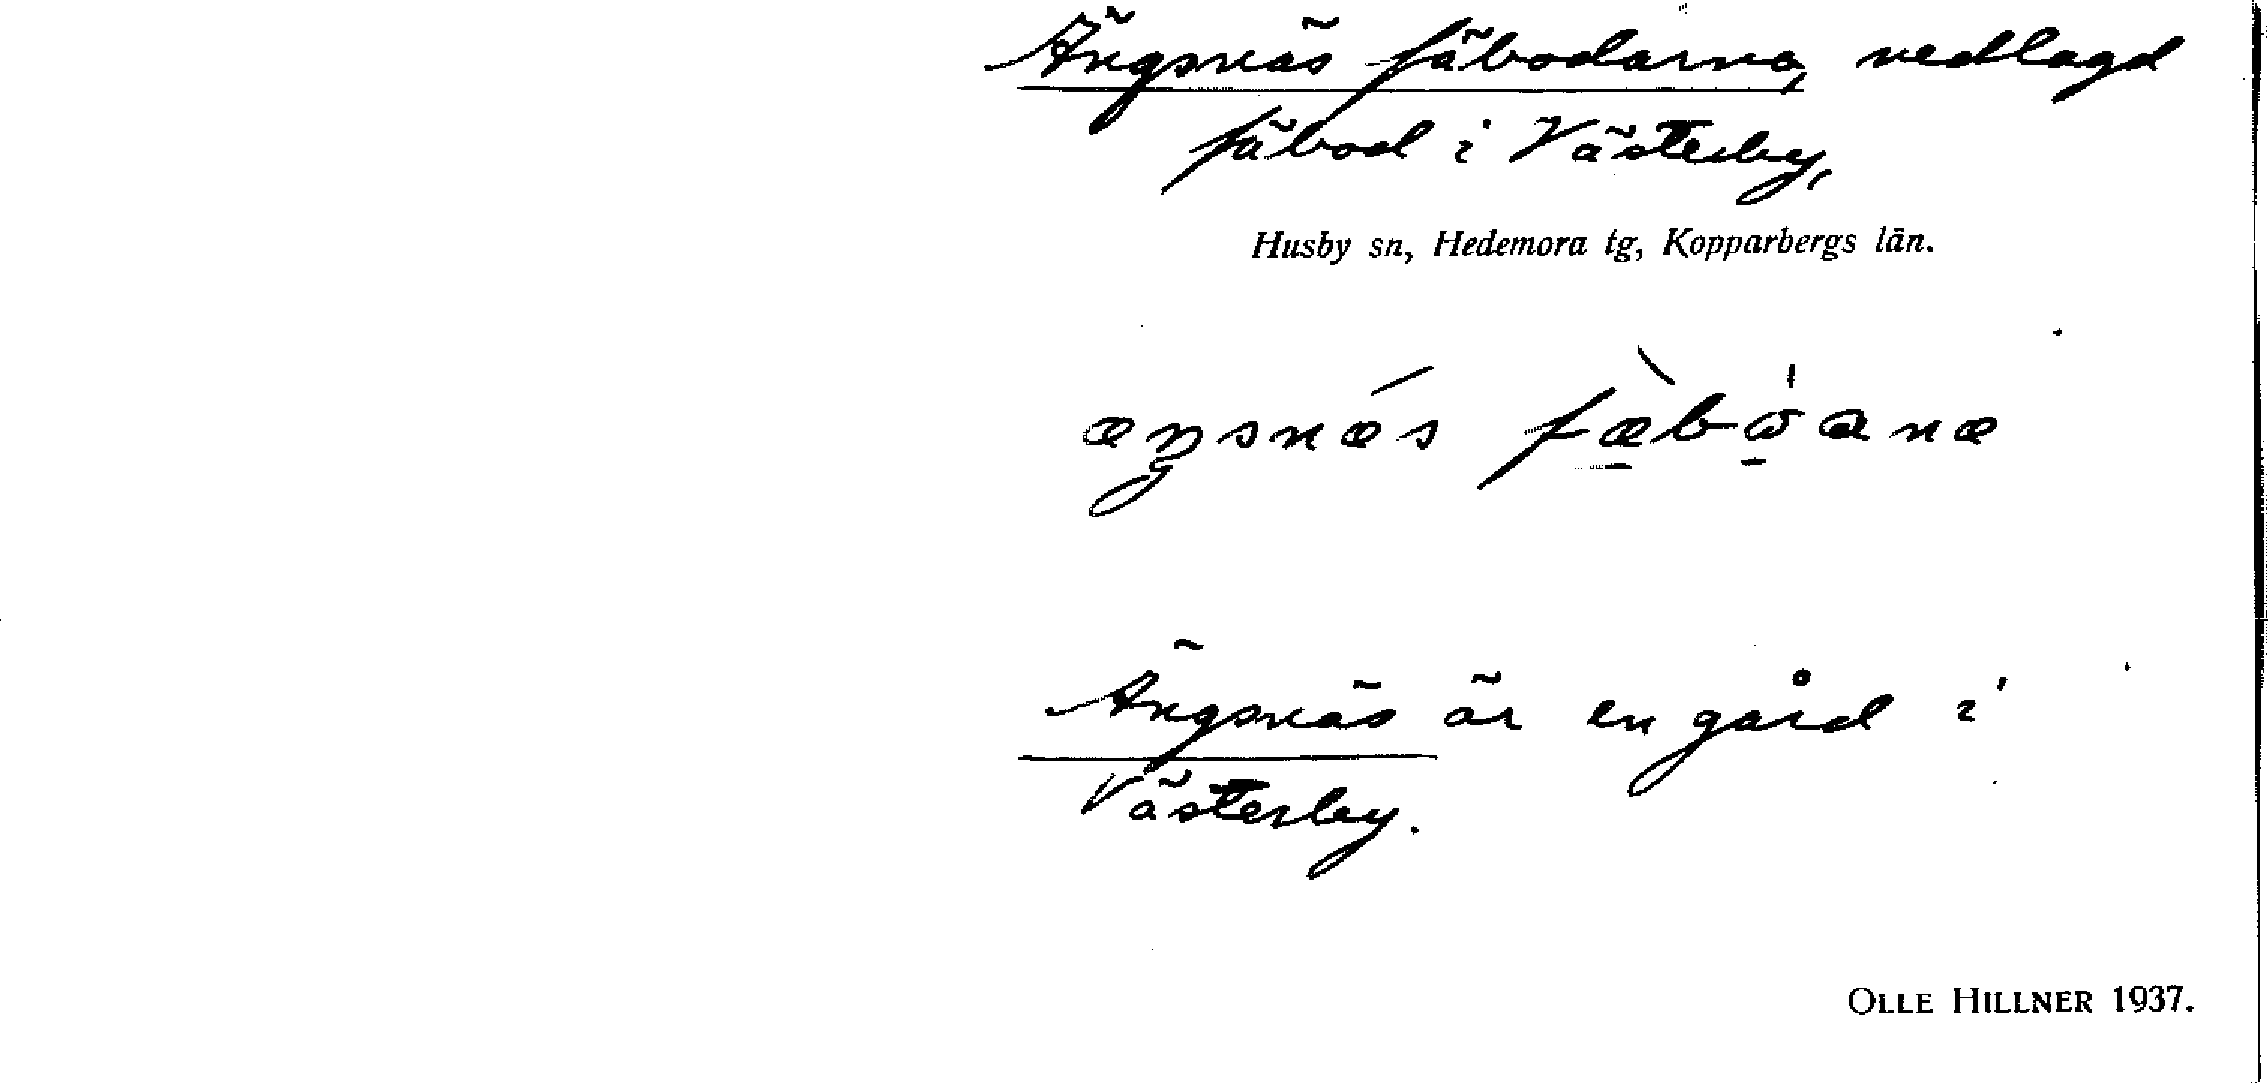 Ängsnäs fäbodarna, nedlagd
fäbod i Västerby,
Husby sn, Hedemora tg, Kopparbergs län.
Ängsnäs är en gård i
Västerby.
OLLE HILLNER 1937.